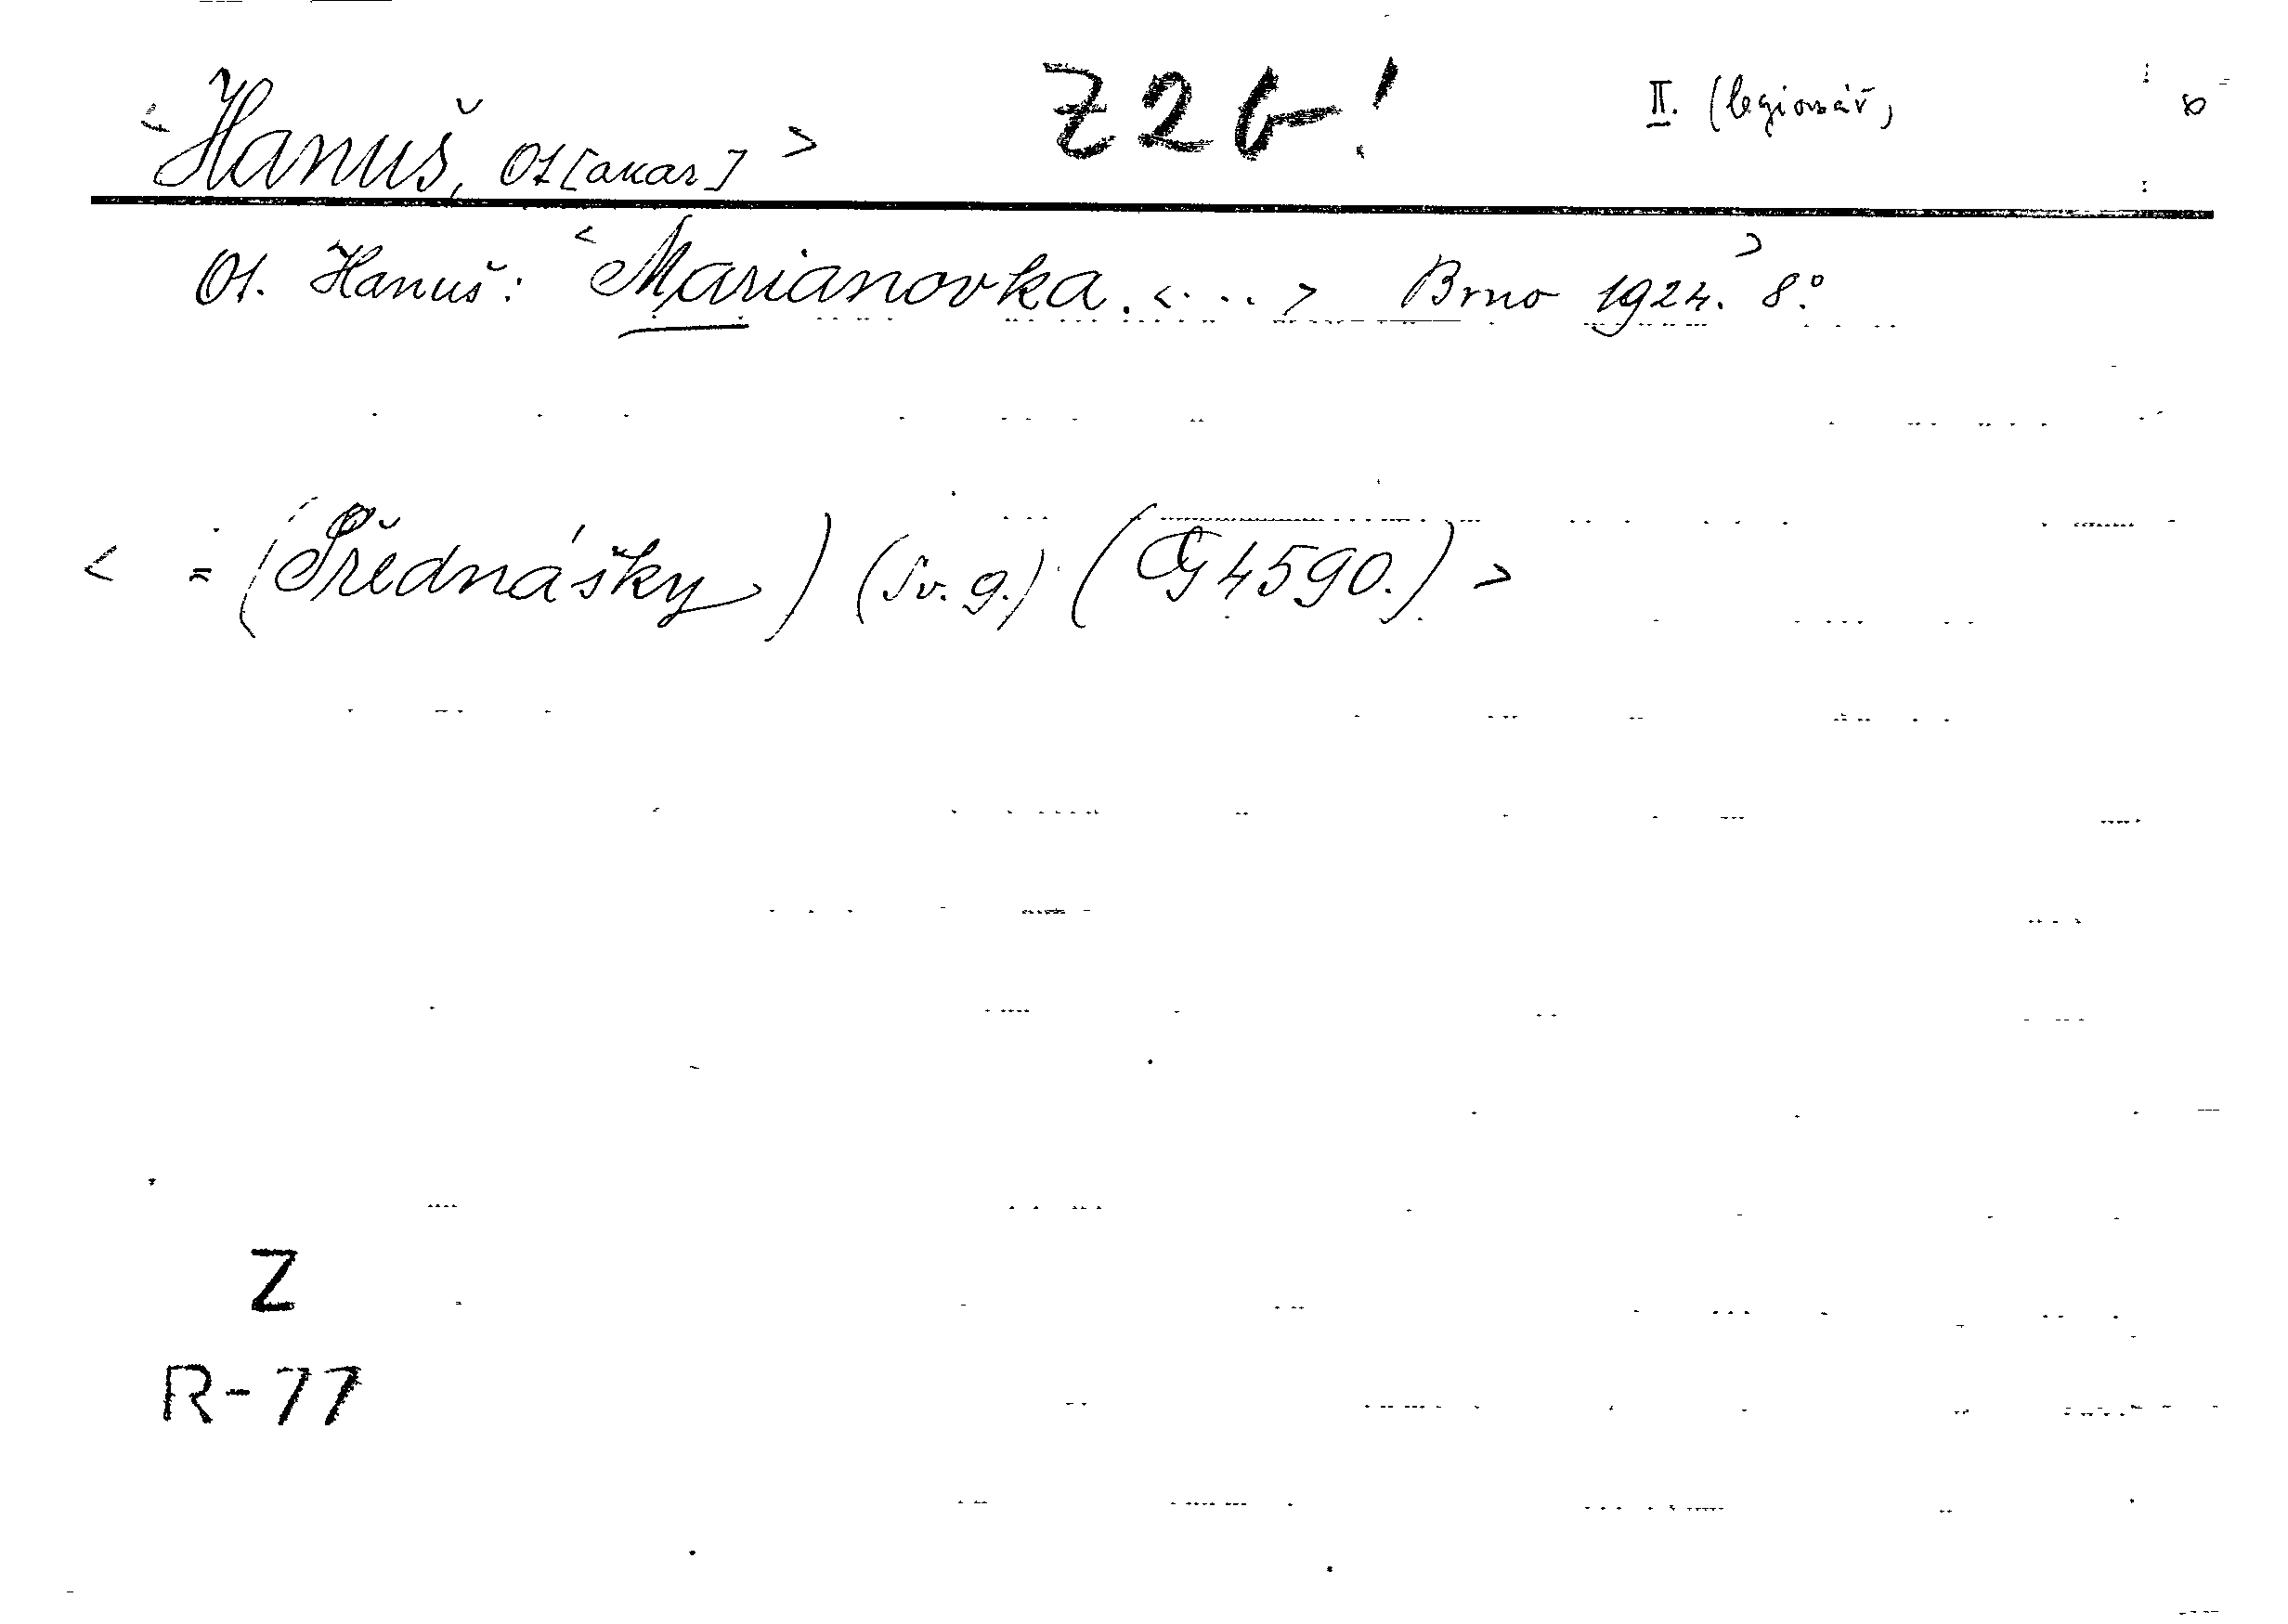 <Hanuš, Ot[akar]> Z2b-! II. (legionář) 8
Ot. Hanuš: <Marianovka. <...> Brno 1924.> 8.°
< = (Přednášky) (Sv. 9.) (G 4590.) >
Z
R-77